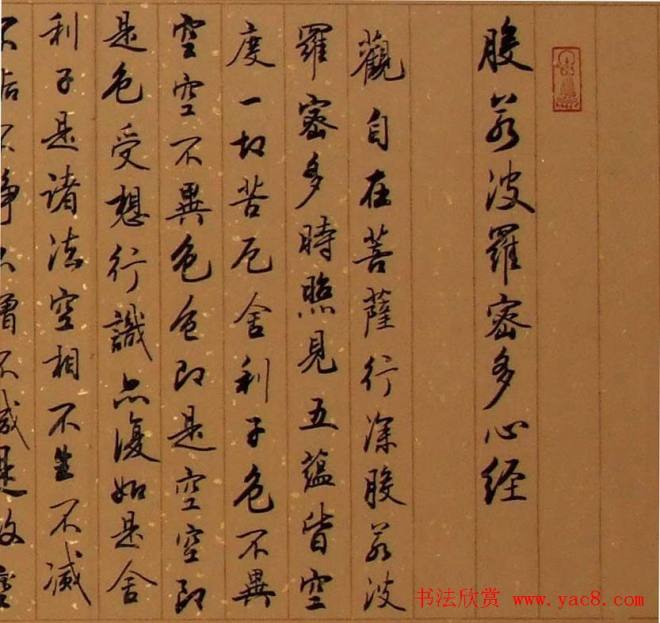 般若波羅密多心经
觀自在菩薩行深般若波
羅密多時照見五蕴皆空
度一切苦厄舍利子色不異
空空不異色色即是空空即
是色受想行識亦復如是舍
利子是諸法空相不生不滅
不垢不净不增不减是故空
书法欣赏 www.yac8.com